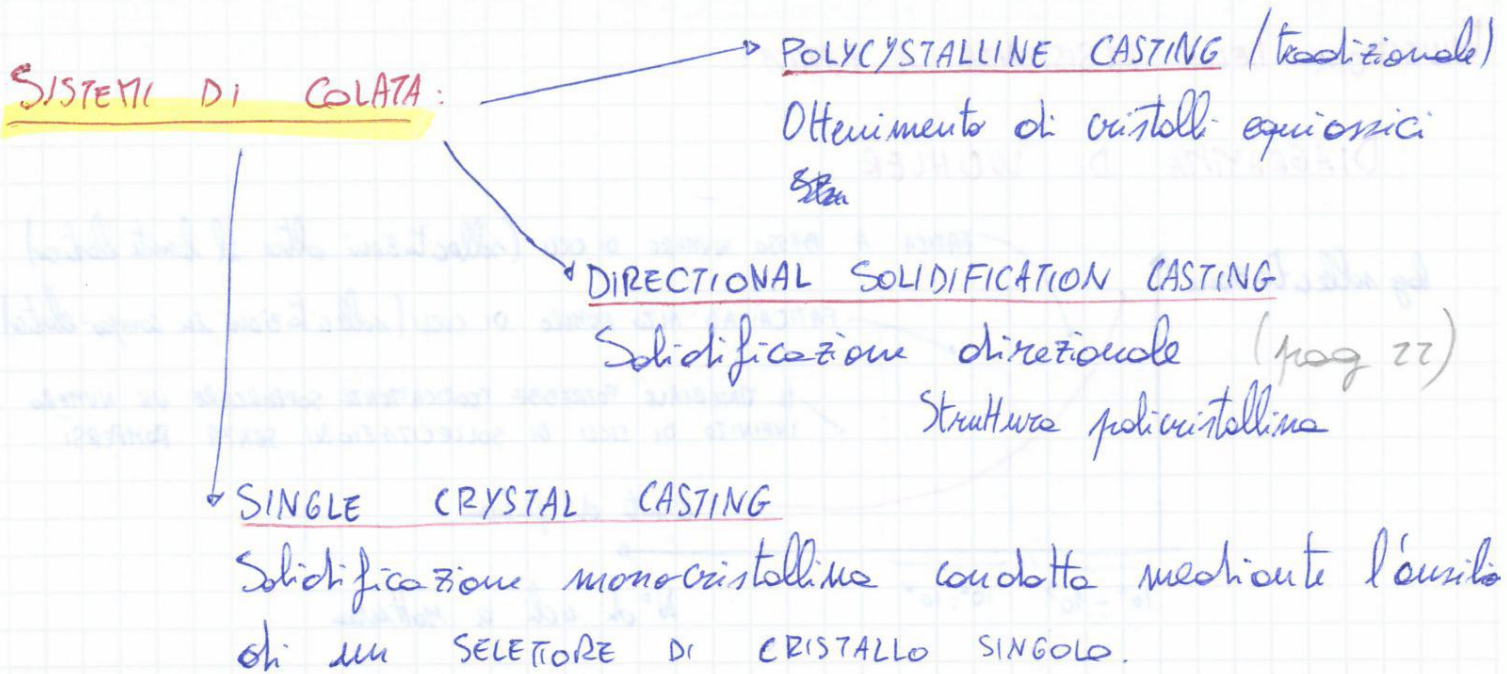 SISTEMI DI COLATA:
POLYCYSTALLINE CASTING (tradizionale)
Ottenimento di cristalli equiassici
DIRECTIONAL SOLIDIFICATION CASTING
Solidificazione direzionale (pag 22)
Struttura policristallina
SINGLE CRYSTAL CASTING
Solidificazione monocristallina condotta mediante l'ausilio
di un SELETTORE DI CRISTALLO SINGOLO.